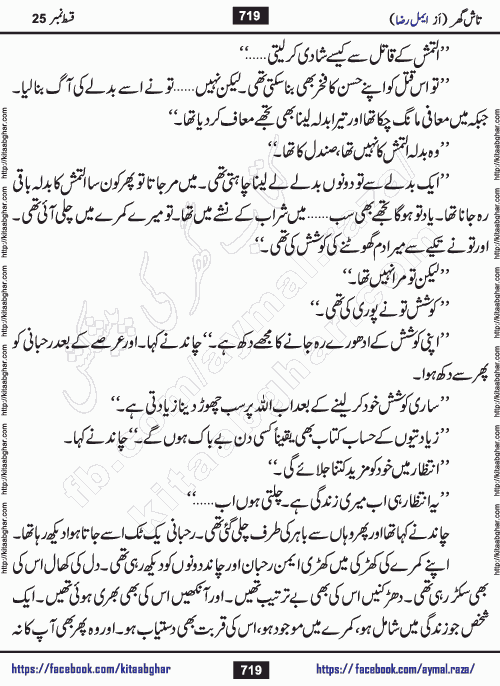 قسط نمبر 25
719
تاش گھر (از ایمل رضا)
’’التمش کے قاتل سے کیسے شادی کر لیتی......‘‘
’’تو اس قتل کو اپنے حسن کا فخر بھی بنا سکتی تھی۔ لیکن نہیں......تو نے اسے بدلے کی آگ بنا لیا۔
جبکہ میں معافی مانگ چکا تھا اور تیرا بدلہ لینا بھی تجھے معاف کر دیا تھا۔‘‘
’’وہ بدلہ التمش کا نہیں تھا، صندل کا تھا۔‘‘
’’ایک بدلے سے تو دونوں بدلے لے لینا چاہتی تھی۔ میں مر جاتا تو پھر کون سا التمش کا بدلہ باقی
رہ جانا تھا۔ یاد تو ہوگا تجھے بھی سب......میں شراب کے نشے میں تھا۔ تو میرے کمرے میں چلی آئی تھی۔
اور تو نے تکیے سے میرا دم گھوٹنے کی کوشش کی تھی۔‘‘
’’لیکن تو مرا نہیں تھا۔‘‘
’’کوشش تو نے پوری کی تھی۔‘‘
’’اپنی کوشش کے ادھورے رہ جانے کا مجھے دکھ ہے۔‘‘ چاند نے کہا۔ اور عرصے کے بعد رحبانی کو
پھر سے دکھ ہوا۔
’’ساری کوشش خود کر لینے کے بعد اب اللہ پر سب چھوڑ دینا زیادتی ہے۔‘‘
’’زیادتیوں کے حساب کتاب بھی یقیناً کسی دن بے باک ہوں گے۔‘‘ چاند نے کہا۔
’’انتظار میں خود کو مزید کتنا جلائے گی۔‘‘
’’یہ انتظار ہی اب میری زندگی ہے۔ چلتی ہوں اب......‘‘
چاند نے کہا تھا اور پھر وہاں سے باہر کی طرف چلی گئی تھی۔ رحبانی یک ٹک اسے جاتا ہوا دیکھ رہا تھا۔
اپنے کمرے کی کھڑکی میں کھڑی ایمن رحبان اور چاند دونوں کو دیکھ رہی تھی۔ دل کی کھال اس کی
بھی سکڑ رہی تھی۔ دھڑکنیں اس کی بھی بے ترتیب تھیں۔ اور آنکھیں اس کی بھی بھری ہوئی تھیں۔ ایک
شخص جو زندگی میں شامل ہو، کمرے میں موجود ہو، اس کی قربت بھی دستیاب ہو۔ اور وہ پھر بھی آپ کا نہ
https://facebook.com/kitaabghar
719
https://facebook.com/aymal.raza/
http://kitaabghar.com
fb.com/aymal.raza
kitaabghar.com